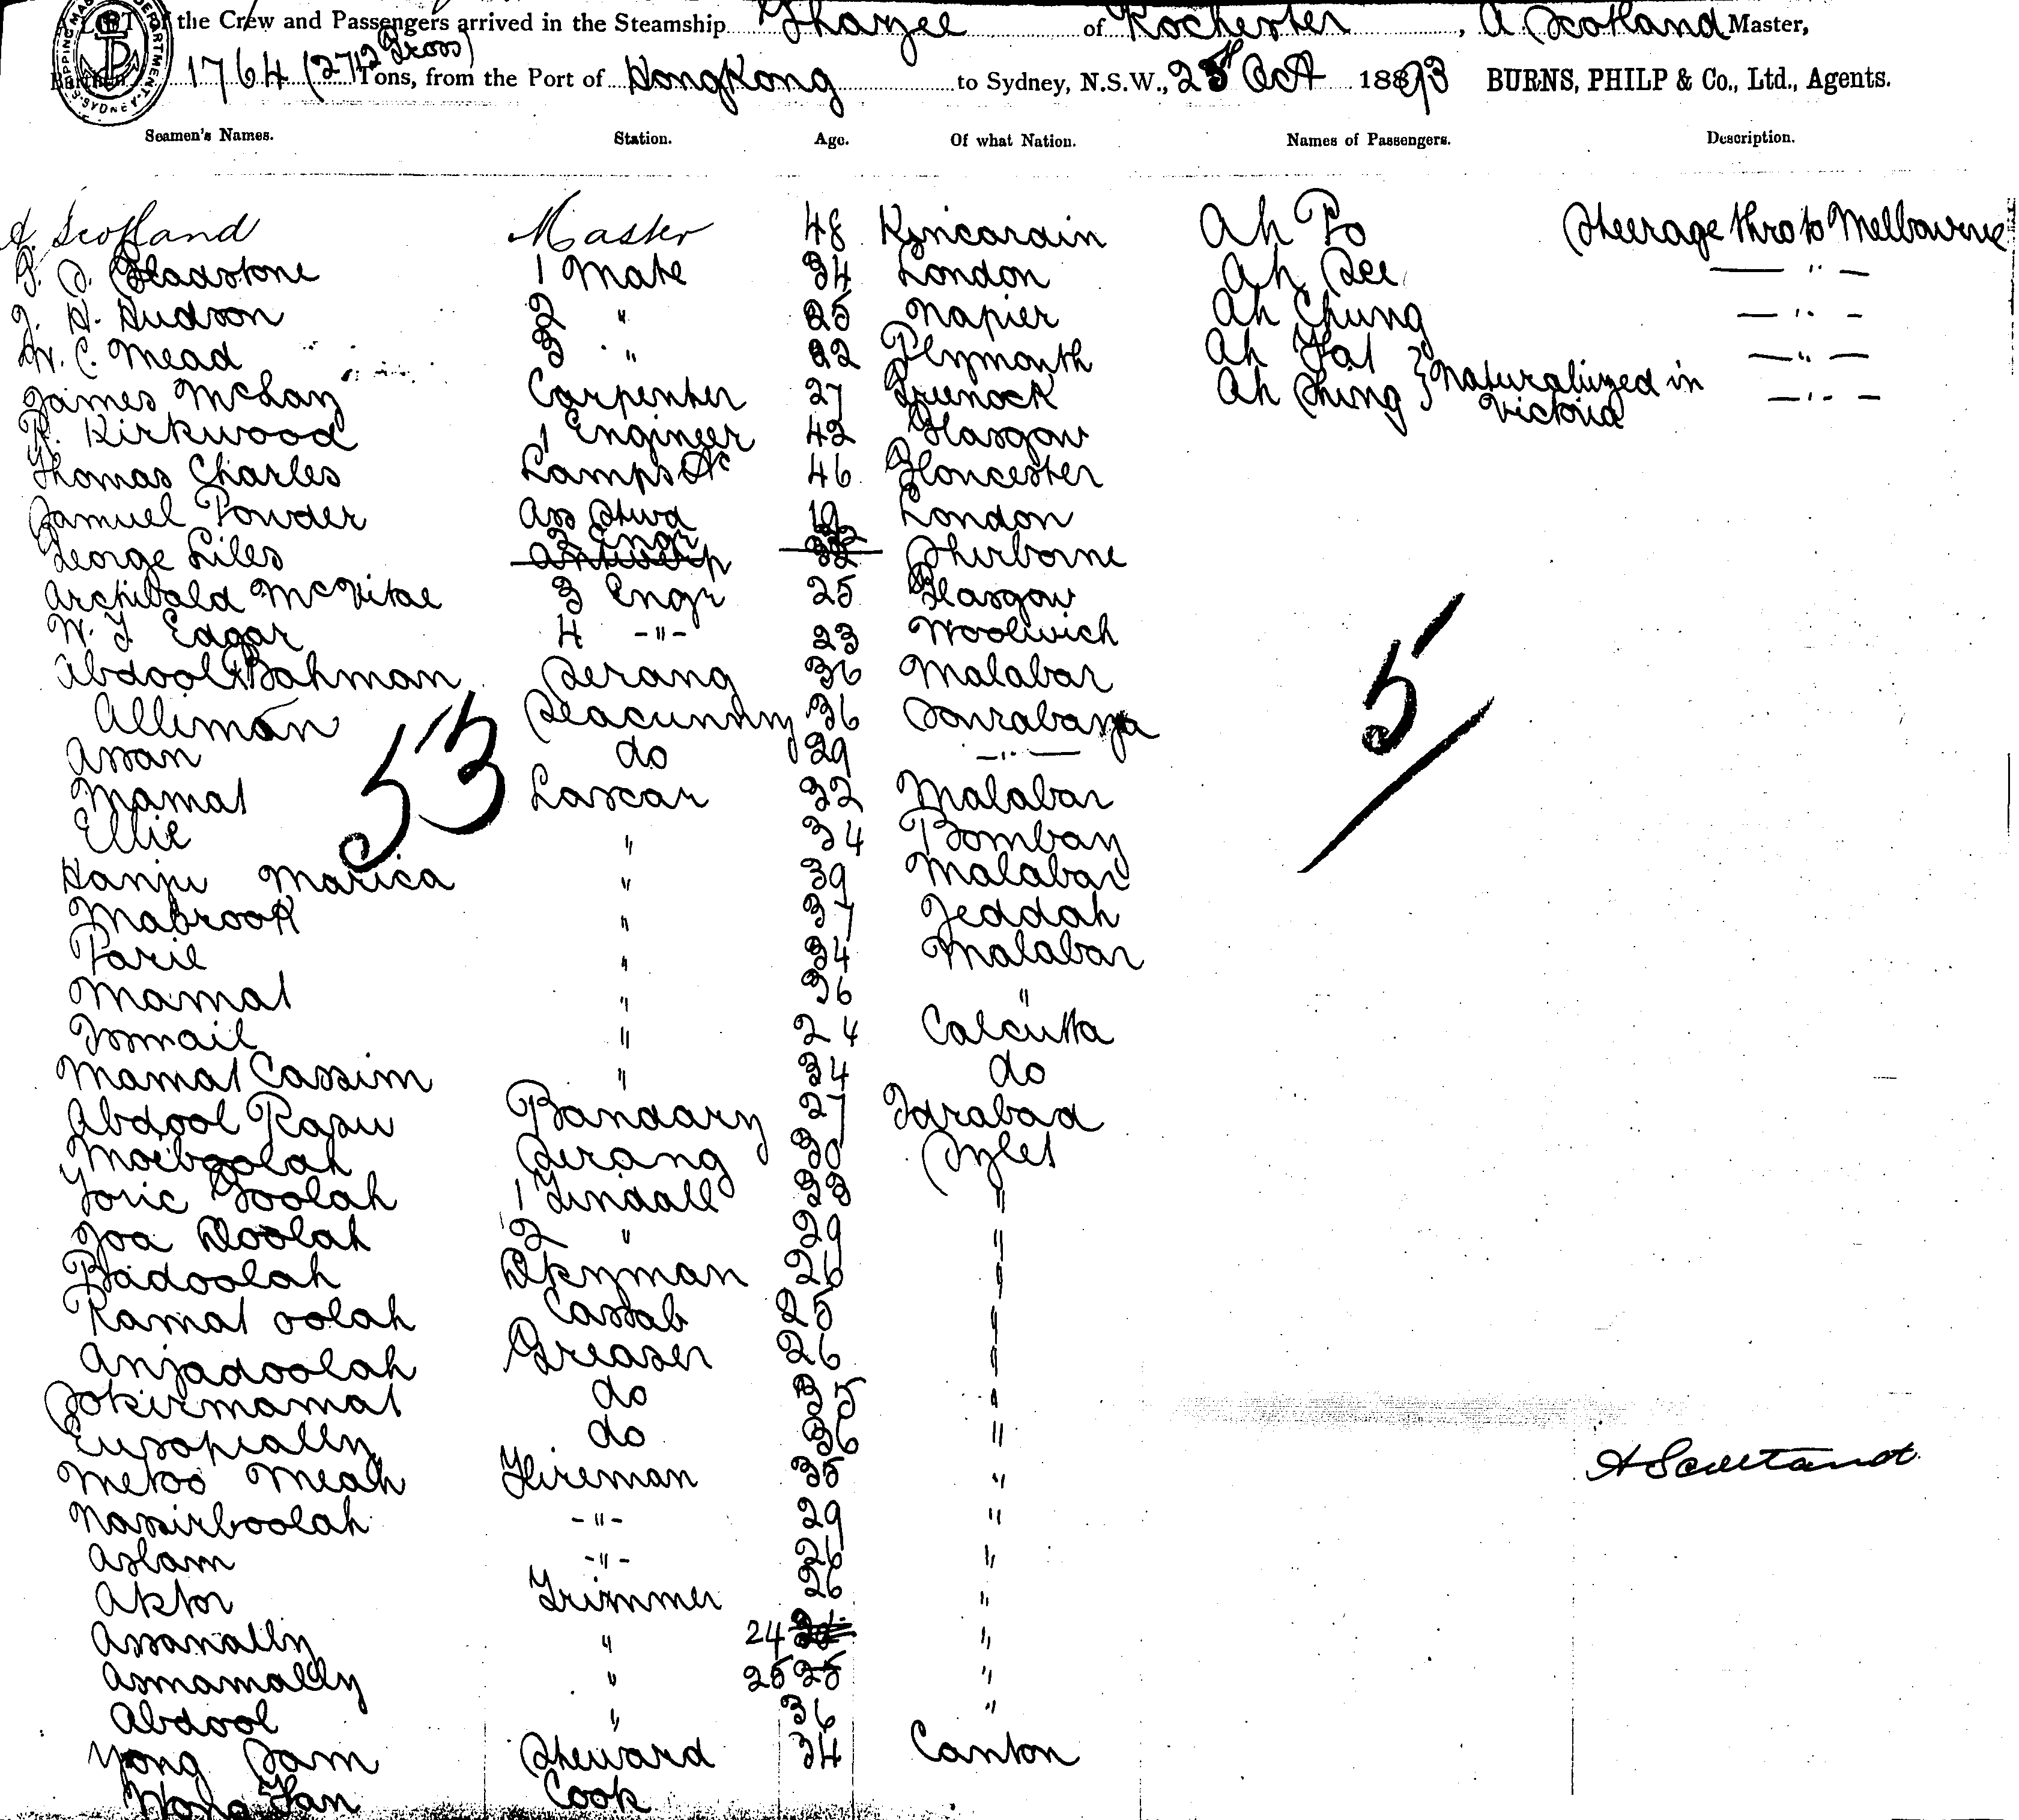 of the Crew and Passengers arrived in the Steamship Ghazee of Rochester, A Scotland Master,
1764 (2712 Gross) Tons, from the Port of HongKong to Sydney, N.S.W., 25th Oct 1893 BURNS, PHILP & Co., Ltd., Agents.
Seamen's Names. Station. Age. Of what Nation. Names of Passengers. Description.
A. Scotland Master 48 Kincardin Ah Po Steerage thro to Melbourne
Gladstone 1 Mate 34 London Ah See — " —
J. H. Hudson 2 " 25 Napier Ah Chung — " —
W. C. Mead 3 " 22 Plymouth Ah Hat — " —
James McLay Carpenter 27 Greenock Ah Shing } Naturalized in Victoria — " —
R. Kirkwood 1 Engineer 42 Glasgow
Thomas Charles Lamps &c 46 Gloncester
Samuel Powder Ass Stwd 19 London
George Liles 2 Engr 32 Sherborne
Archibald McVitae 3 Engr 25 Glasgow
W. J. Edgar 4 -"- 23 Woolwich
Abdool Rahman Serang 36 Malabar
Alliman Seacunny 36 Sourabaya
Assan do 29 — " —
Mamat Lascar 32 Malabar
Ellie " 34 Bombay
Kanju Marica " 39 Malabar
Mabrook " 37 Jeddah
Parie " 34 Malabar
Mamat " 36 "
Ismail " 24 Calcutta
Mamat Cassim " 34 do
Abdool Rasu Bandary 27 Idrabad
Moiboolah Serang 30 Sylet
Toric Goolah 1 Tindall 33 "
Joa Doolah 2 " 29 "
Badoolah Dkyman 26 "
Ramat oolah Cassab 25 "
Anjadoolah Greaser 26 "
Sokirmamat do 35 "
Eusopially do 36 "
Metoo Meah Fireman 35 "
Nassirboolah -"- 29 "
Aslam -"- 26 "
Aktor Trimmer 26 "
Assanally " 24 "
Asmamally " 25 25 "
Abdool " 36 "
Yong Sam Steward 34 Canton
Wong Han Cook
53
5
A Scotland